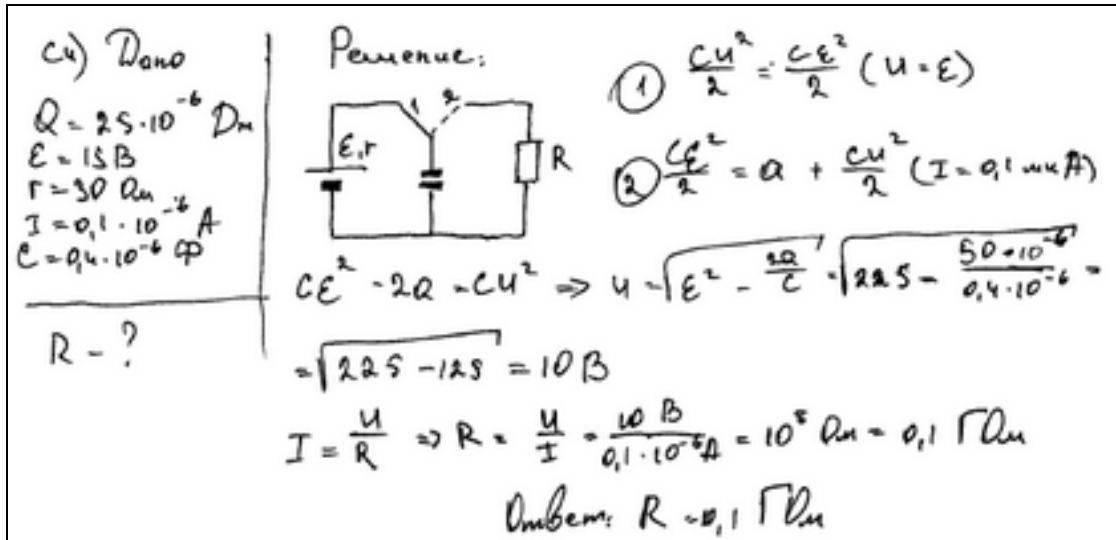 C4) Дано
Q = 25·10⁻⁶ Дж
ε = 15 В
r = 30 Ом
I = 0,1·10⁻⁶ А
C = 0,4·10⁻⁶ Ф
R - ?
Решение:
1 2
ε, r
R
① CU²/2 = Cε²/2 (U = ε)
② Cε²/2 = Q + CU²/2 (I = 0,1 мкА)
Cε² - 2Q = CU² ⇒ U = √(ε² - 2Q/C) = √(225 - 50·10⁻⁶/0,4·10⁻⁶) =
= √(225 - 125) = 10 В
I = U/R ⇒ R = U/I = 10 В/0,1·10⁻⁶ А = 10⁸ Ом = 0,1 ГОм
Ответ: R = 0,1 ГОм